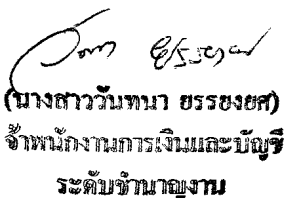 (นางสาววันทนา ยรรยงยศ)
จ้าพนักงานการเงินและบัญชี
ระดับชำนาญงาน